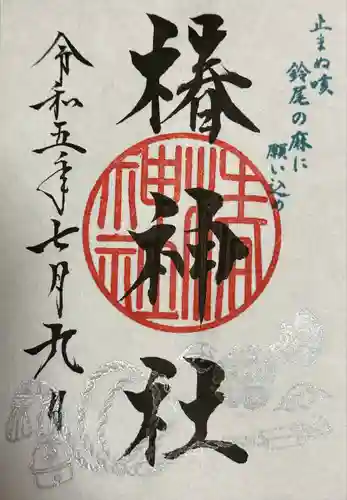 止まぬ咳
鈴尾の麻に
願い込め
椿神社
令和五年七月九日